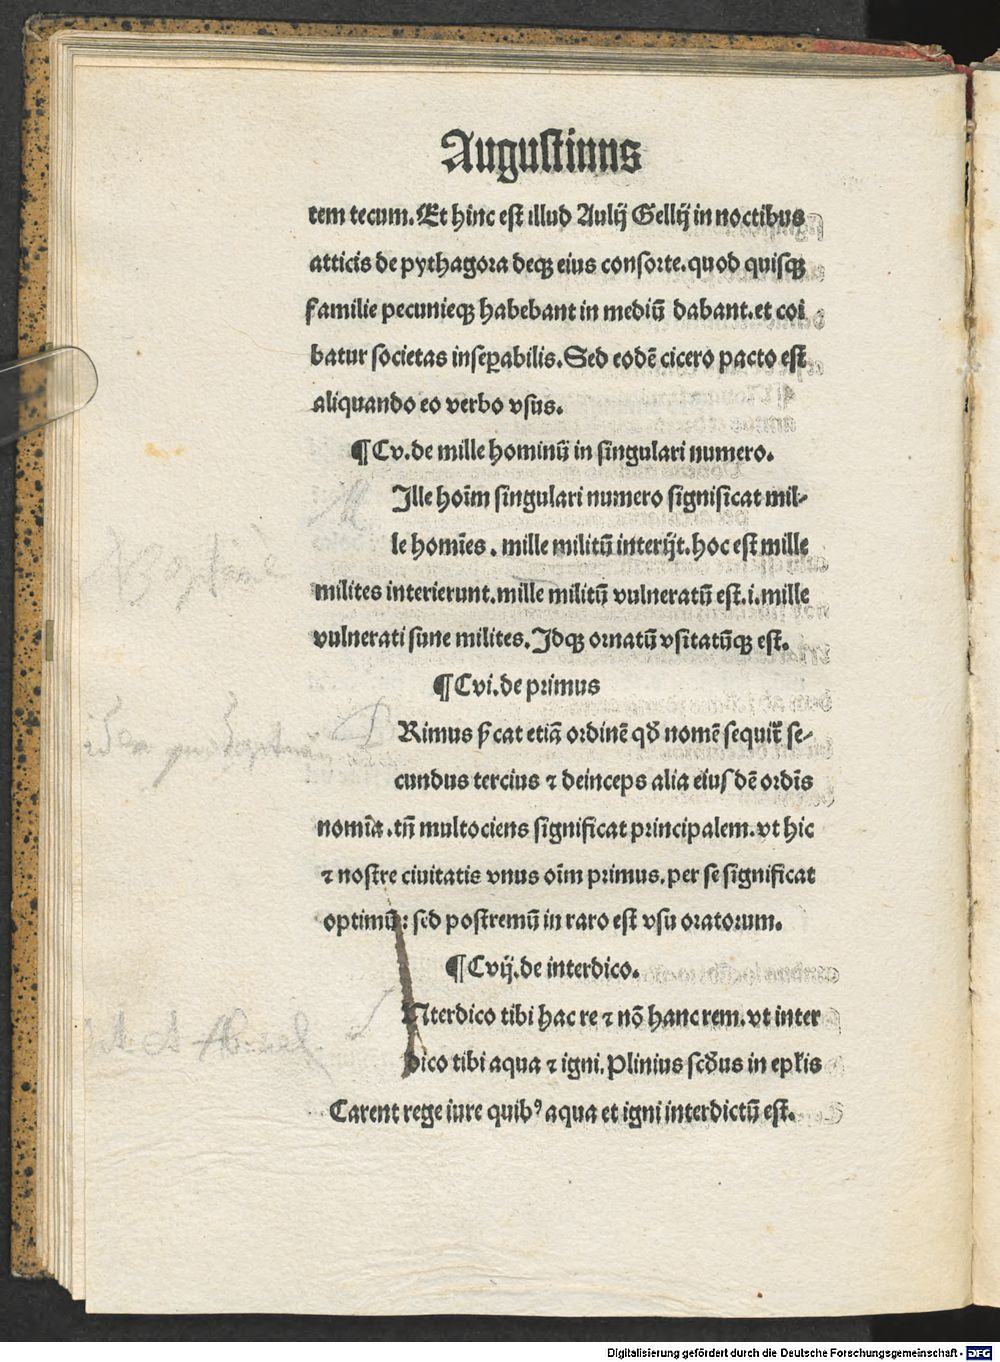 Augustinus
tem tecum. Et hinc est illud Aulij Gellij in noctibus
atticis de pythagora deqꝫ eius consorte. quod quisqꝫ
familie pecunieqꝫ habebant in mediū dabant. et coi
batur societas insepabilis. Sed eodē cicero pacto est
aliquando eo verbo vsus.
¶ Cv. de mille hominū in singulari numero.
Ille hoīm singulari numero significat mil-
le homīes. mille militū interijt. hoc est mille
milites interierunt. mille militū vulneratū est. i. mille
vulnerati sune milites. Idqꝫ ornatū vsitatūqꝫ est.
¶ Cvi. de primus
Rimus cat etiā ordinē qđ nomē sequiť se-
cundus tercius ⁊ deinceps alia eiusdē ordīs
nomīa. tñ multociens significat principalem. vt hic
⁊ nostre ciuitatis vnus oīm primus. per se significat
optimū: sed postremū in raro est vsu oratorum.
¶ Cvij. de interdico.
Nterdico tibi hac re ⁊ nō hanc rem. vt inter
dico tibi aqua ⁊ igni. Plinius scđus in epƚis
Carent rege iure quibꝰ aqua et igni interdictū est.
Digitalisierung gefördert durch die Deutsche Forschungsgemeinschaft - DFG